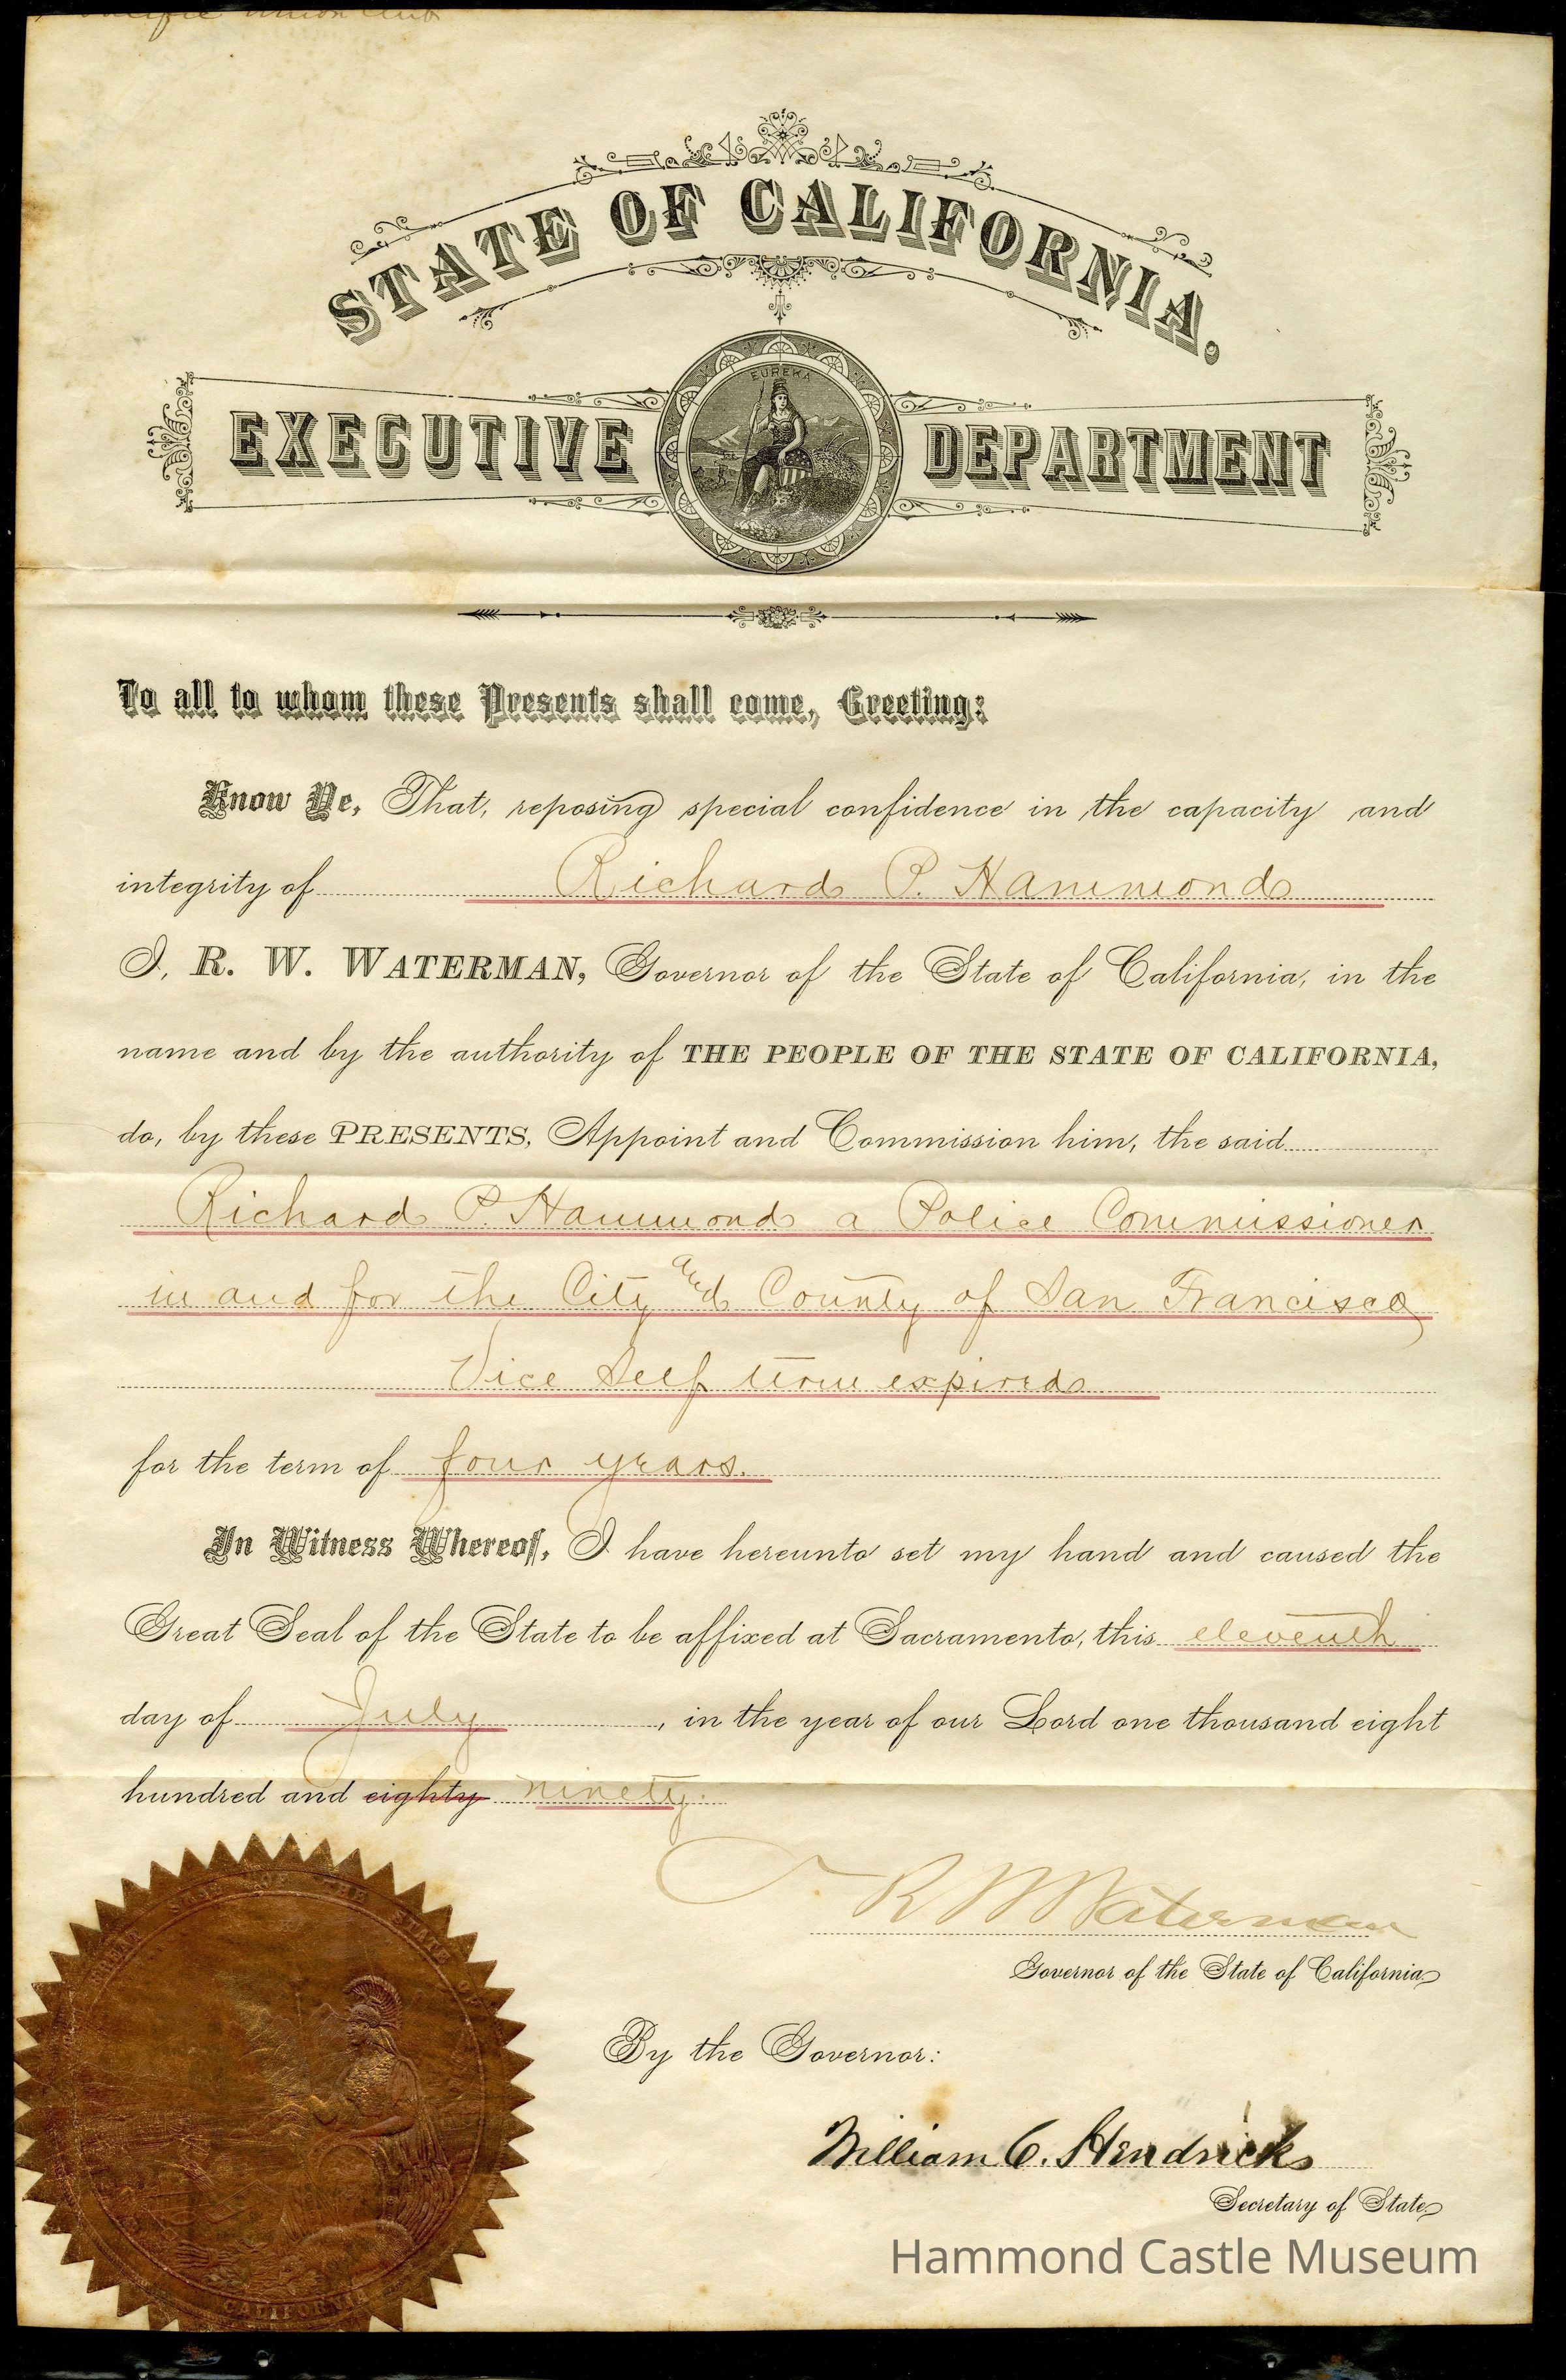 Pacific Union Club
STATE OF CALIFORNIA.
EUREKA
EXECUTIVE DEPARTMENT
To all to whom these Presents shall come, Greeting:
Know Ye, That, reposing special confidence in the capacity and
integrity of Richard P. Hammond
I, R. W. WATERMAN, Governor of the State of California, in the
name and by the authority of THE PEOPLE OF THE STATE OF CALIFORNIA,
do, by these PRESENTS, Appoint and Commission him, the said
Richard P. Hammond a Police Commissioner
in and for the City and County of San Francisco
Vice Self term expired
for the term of four years.
In Witness Whereof, I have hereunto set my hand and caused the
Great Seal of the State to be affixed at Sacramento, this eleventh
day of July, in the year of our Lord one thousand eight
hundred and eighty ninety.
R W Waterman
Governor of the State of California
By the Governor:
William C. Hendricks
Secretary of State
GREAT SEAL OF THE STATE
CALIFORNIA
Hammond Castle Museum